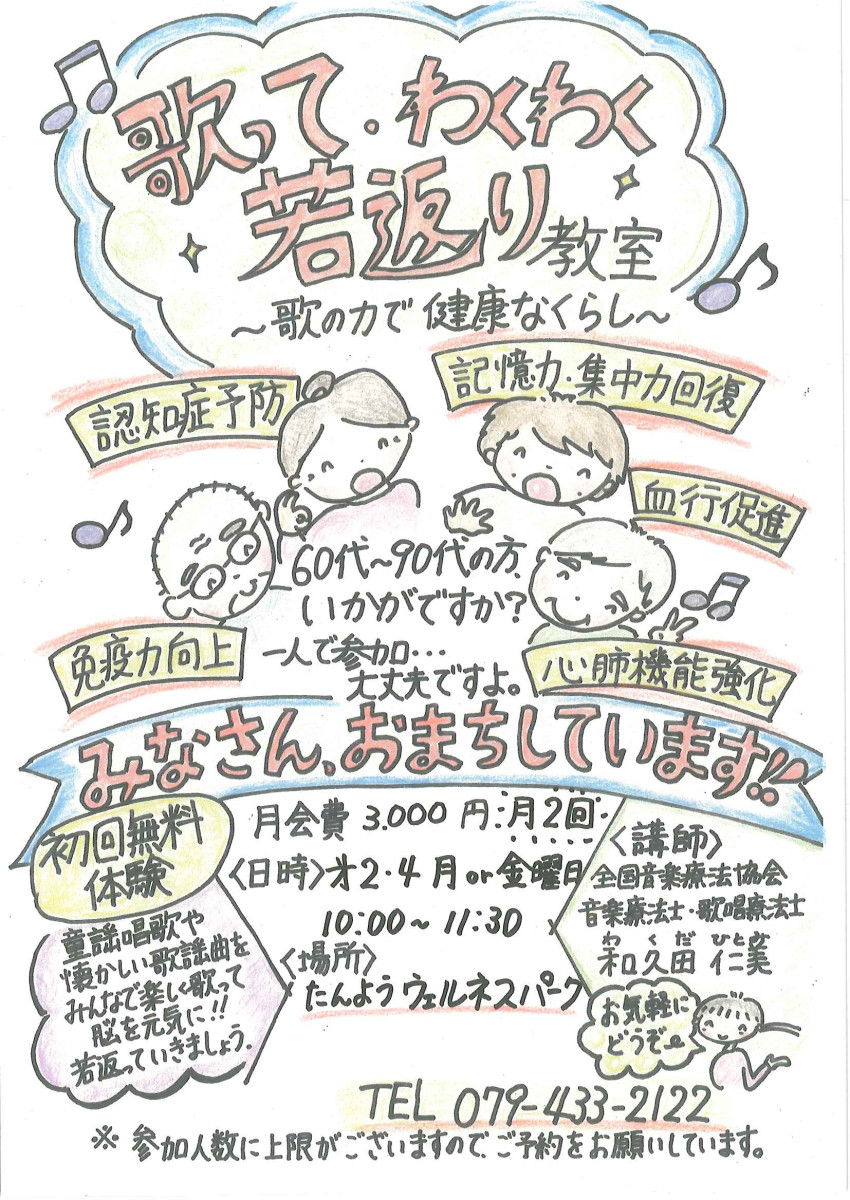 歌って・わくわく
若返り教室
～歌の力で健康なくらし～
認知症予防
記憶力・集中力回復
血行促進
60代～90代の方、
いかがですか?
免疫力向上
一人で参加…
大丈夫ですよ。
心肺機能強化
みなさん、おまちしています!!
初回無料
体験
月会費 3.000円:月2回
〈日時〉才2・4月or金曜日
10:00～11:30
〈場所〉
たんようウェルネスパーク
〈講師〉
全国音楽療法協会
音楽療法士・歌唱療法士
わくだ ひとみ
和久田 仁美
童謡唱歌や
懐かしい歌謡曲を
みんなで楽しく歌って
脳を元気に!!
若返っていきましょう.
お気軽に
どうぞ
TEL 079-433-2122
※参加人数に上限がございますので、ご予約をお願いしています。